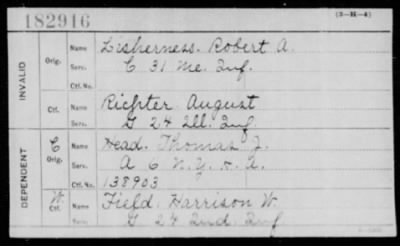 182916
(3-H-4)
INVALID
Orig.
Name Lisherness. Robert A.
Serv. C 31 Me. Inf.
Ctf. No.
Ctf.
Name Richter August
Serv. G 24 Ill. Inf.
DEPENDENT
C
Orig.
Name Head. Thomas J.
Serv. A 6 N.Y. H.A.
Ctf. No. 138903
W.
Ctf.
Name Field. Harrison W.
Serv. G 24 Ind. Inf